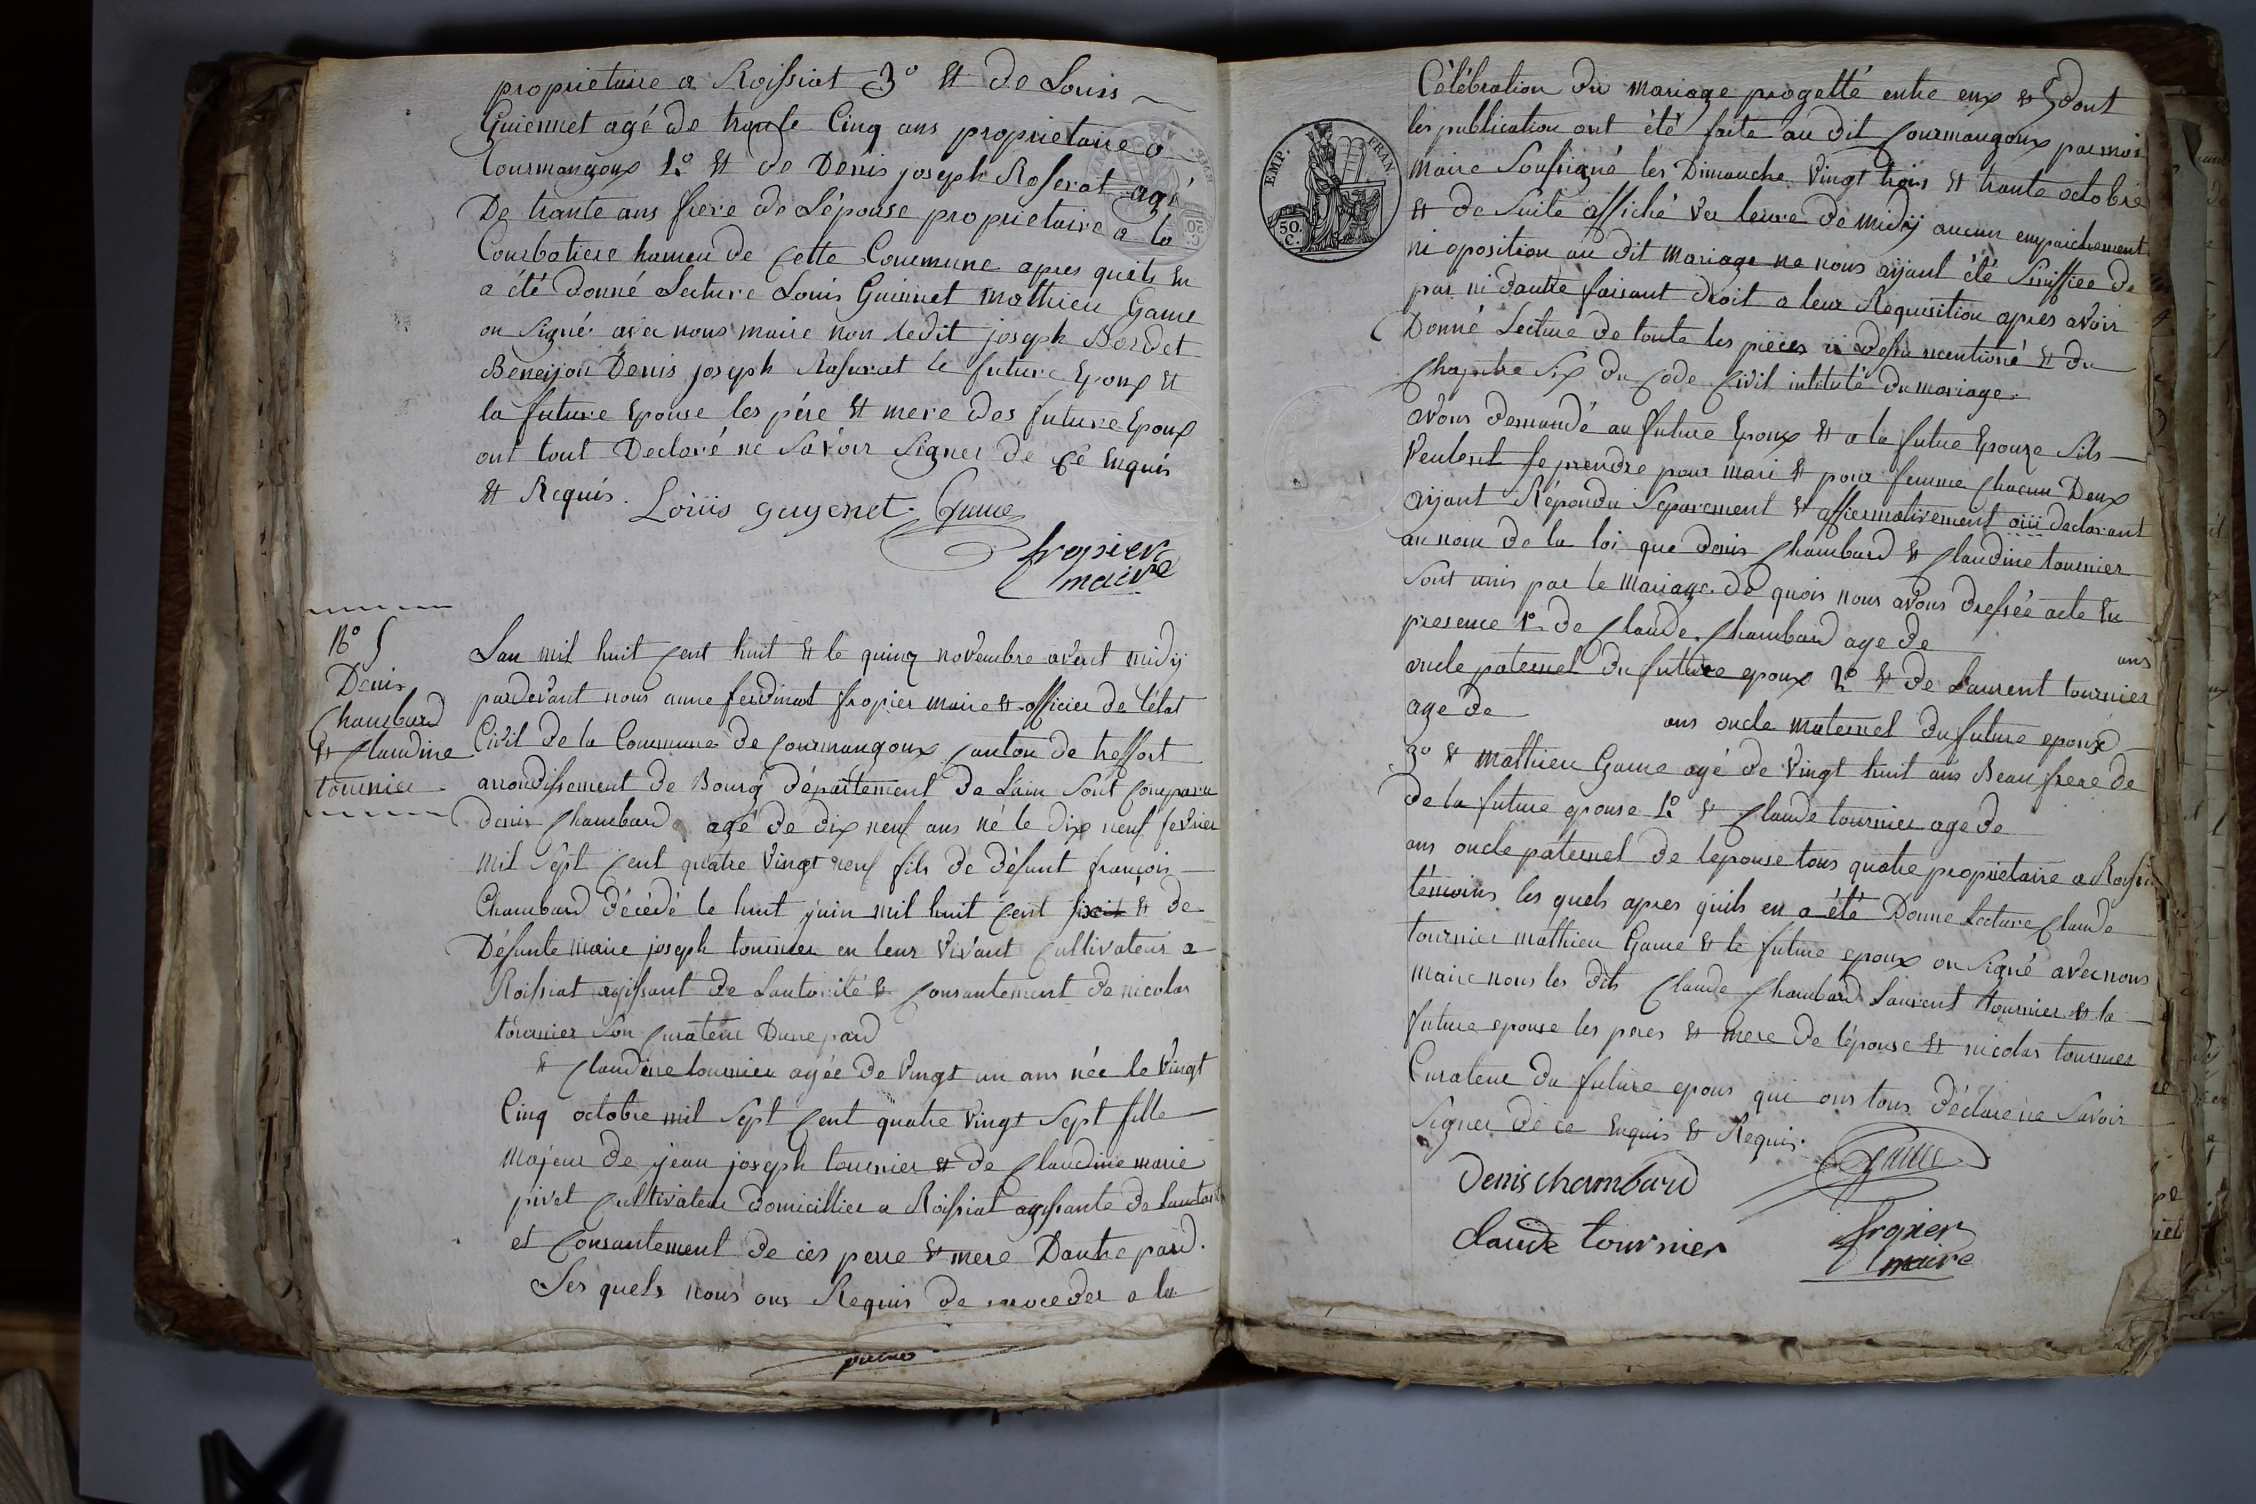 proprietaire a Roissiat 3º & de Louis
Guiennet agé de trante Cinq ans proprietaire a
Courmangoux 4º & de Denis joseph Roserat agé
De trante ans frere de Lépouse proprietaire a la
Courbatiere hameu de Cette Commune apres quils en
a été donné Lecture Louis Guiennet mathieu Game
on Signé avec nous maire non ledit joseph Bordet
Beneijon Denis joseph Roserat le future Epoux &
la future Epouse les pére & mere des future Epoux
ont tout Declaré ne Savoir Signer de Ce Enquis
& Requis.
Loüis guyenet. Game
fropier
maire
Nº 5
Denis
Chambard
& Claudine
tournier
Lan mil huit Cent huit & le quinz novembre avent midÿ
pardevant nous anne ferdinant fropier maire & officier de l'état
Civil de la Commune de Courmangoux Canton de treffort
arrondissement de Bourg département de Lain Sont Comparu
denis Chambard agé de dix neuf ans né le dix neuf fevrier
mil Sept Cent quatre vingt neuf fils de défunt françois
Chambard décédé le huit juin mil huit Cent & de
Défunte marie joseph tournier en leur vivant Cultivateur a
Roissiat agissant de Lautorité & Consantement de nicolas
tournier Son Curateur Dune pard
& Claudine tournier agée de vingt un ans née le vingt
Cinq octobre mil Sept Cent quatre vingt Sept fille
majeur de jean joseph tournier & de Claudine marie
pivet Cultivateur domicillier a Roissiat agissante de Lautorité
et Consantement de ces pere & mere Dautre pard.
Les quels nous ons Requis de procéder a la
Célébration du mariage progetté entre eux & dont
les publication ont été faite au dit Courmangoux par moi
maire Soussigné les Dimanche vingt trois & trante octobre
& de Suite affiché ver leure de midÿ aucun empaichement
ni oposition au dit mariage ne nous aÿant été Sinifiée de
par ni dautre faisant droit a leur Requisition apres avoir
Donné Lecture de toute les pièces ci desu mentioné & du
Chapitre Six du Code Civil intitulé du mariage.
avons demandé au future Epoux & a la future Epouze Sils
veulent se prendre pour mari & pour femme Chacun Deux
aÿant Répondu Séparement & affirmativement oüi declarant
au nom de la loi que denis Chambard & Claudine tournier
Sont unis par le mariage de quois nous avons dressée acte En
presence 1º de Claude Chambard age de ans
oncle paternel du future epoux 2º & de Laurent tournier
age de ans oncle maternel du future epoux
3º & mathieu Game agé de vingt huit ans Beau frere de
de la future epouse 4º & Claude tournier age de
ans oncle paternel de lepouse tous quatre proprietaire a Roissia
témoins les quels apres quils en a été Donne Lecture Claude
tournier mathieu Game & le future epoux on Signé avec nous
maire nons les dits Claude Chambard Laurent tournier & la
future epouse les peres & mere de lépouse & nicolas tournier
Curateur du future epous qui ons tous déclaré ne Savoir
Signer de ce Enquis & Requis.
Game
Denis chambard
claude tournier
fropier
maire
EMP. FRAN.
50. C.